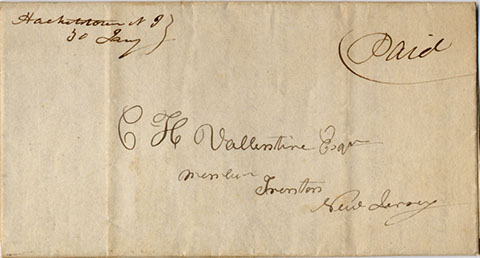 Hackettstown N J
30 Jany
Paid
C H Vallerstine Esqr
Trenton
New Jersey